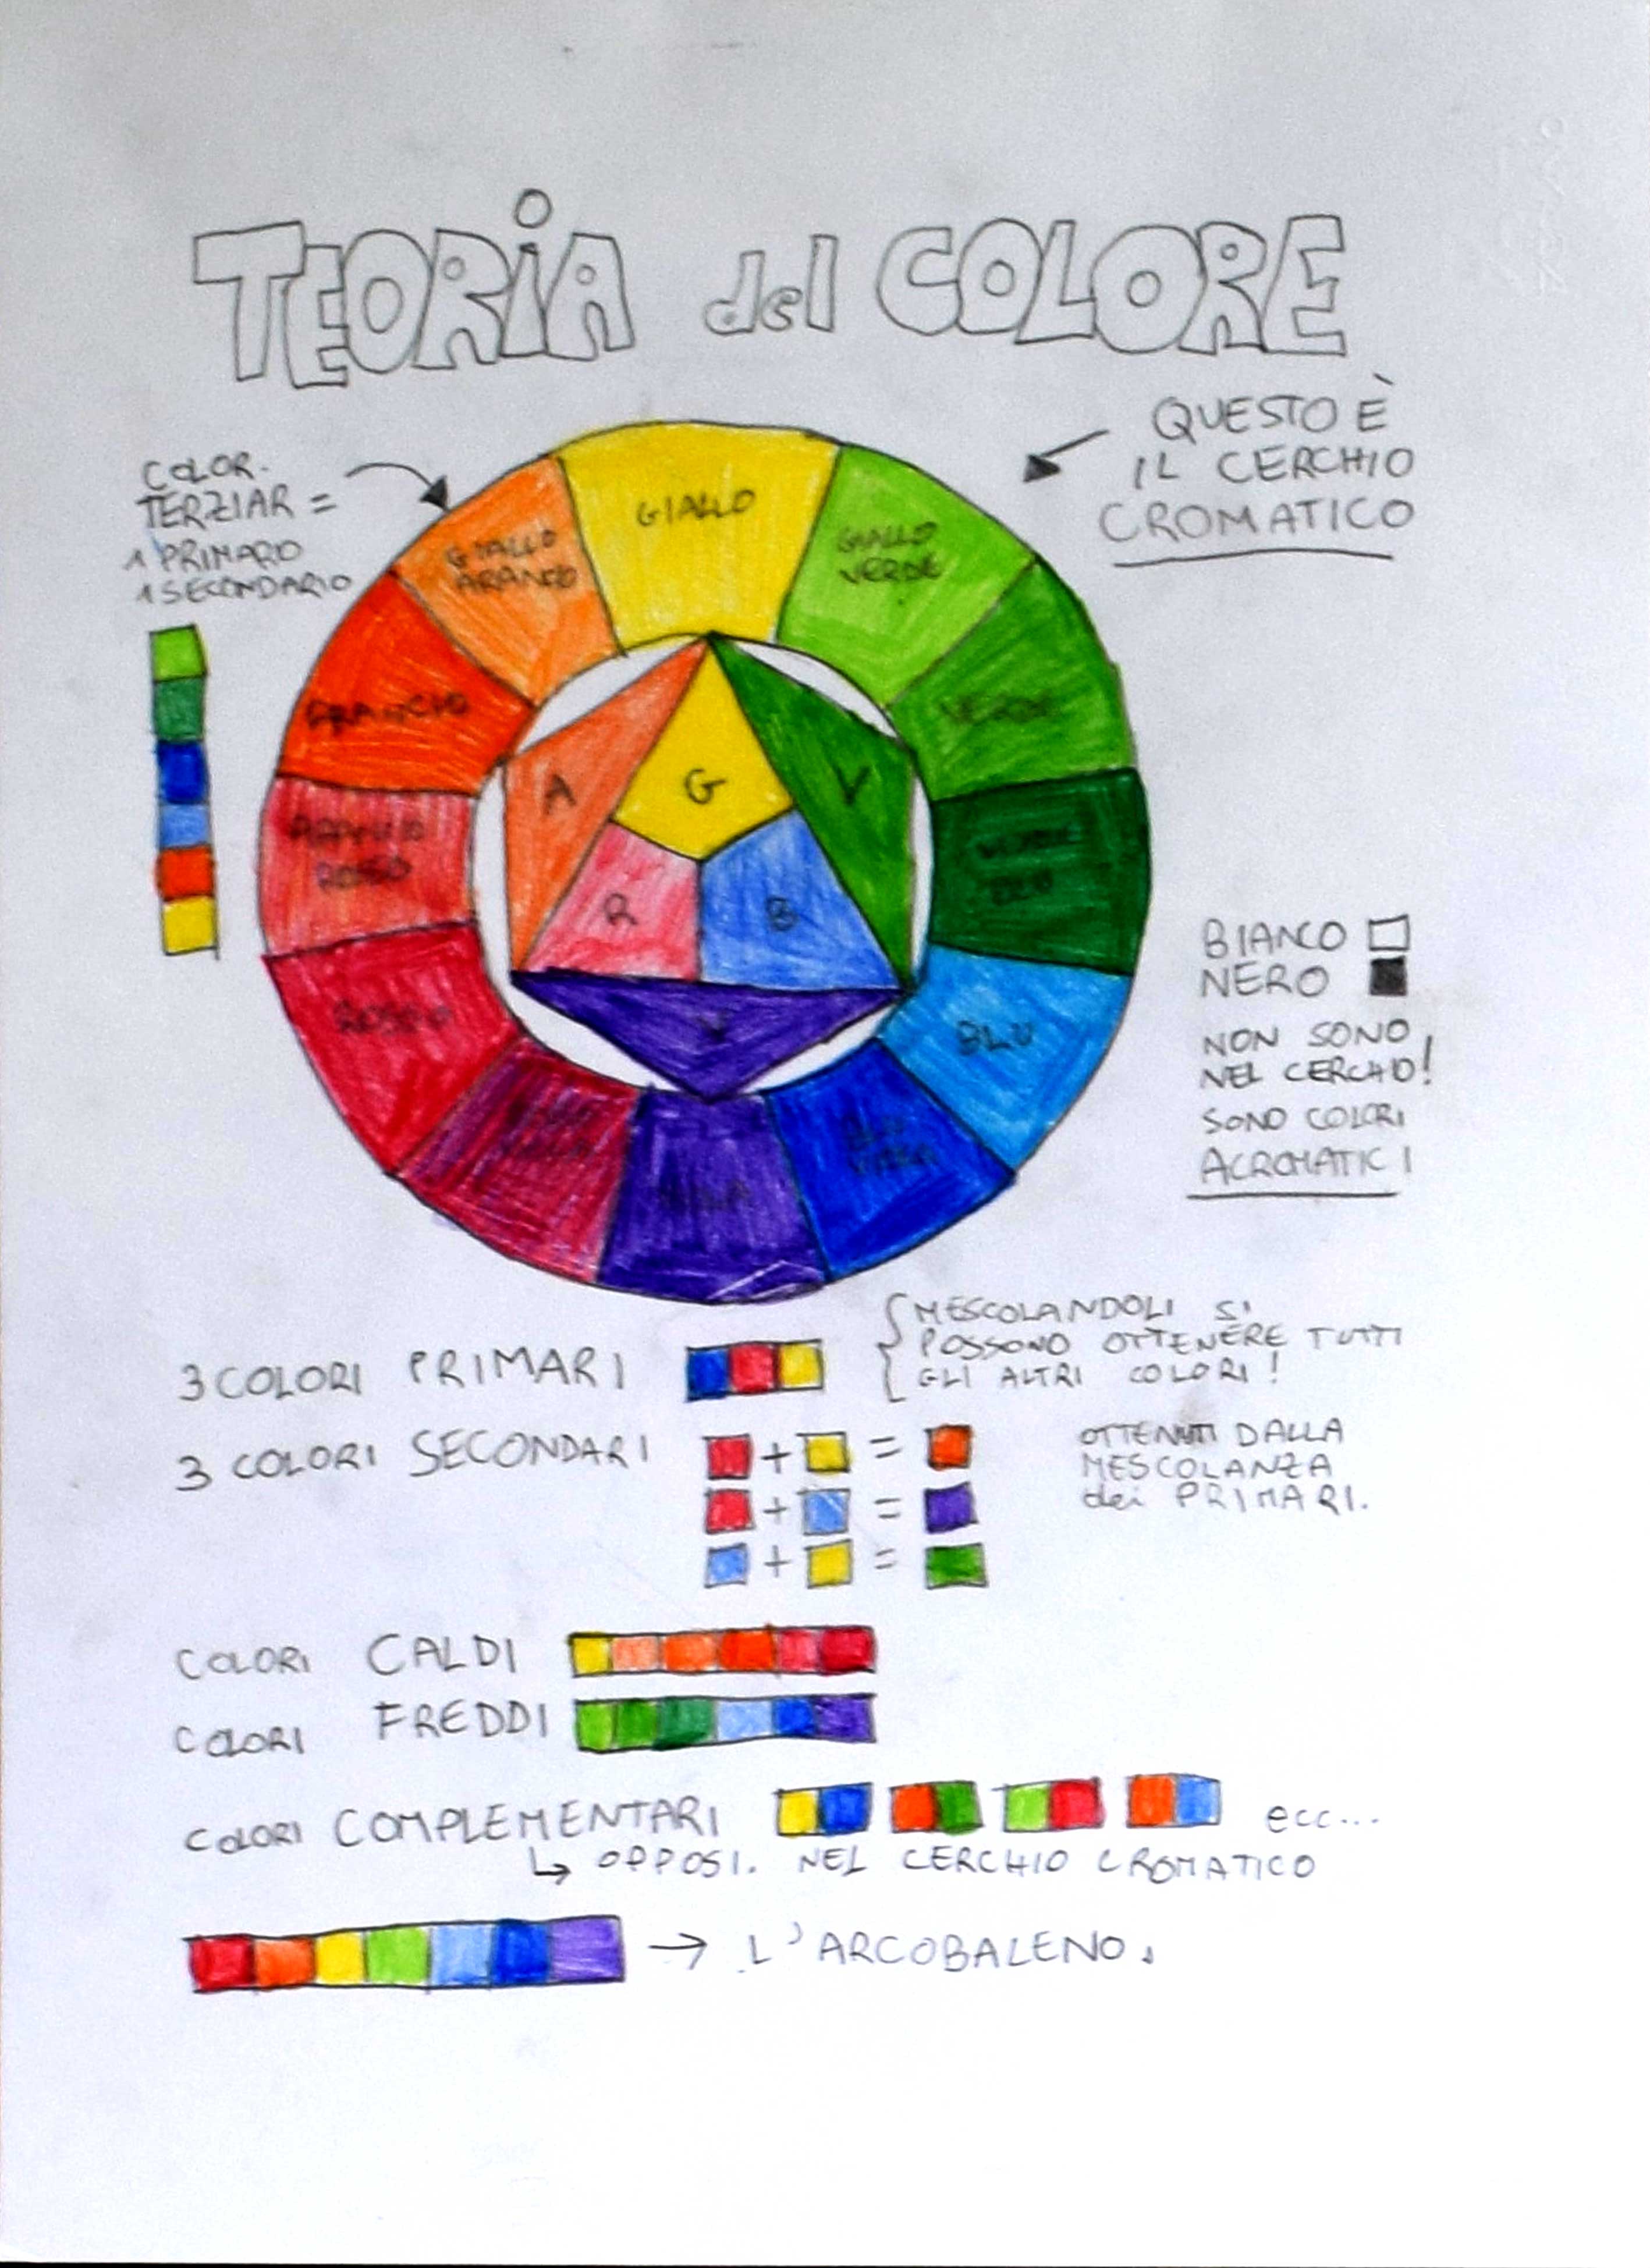 TEORIA del COLORE
QUESTO È
IL CERCHIO
CROMATICO
COLOR.
TERZIAR =
1 PRIMARO
1 SECONDARIO
GIALLO
GIALLO
VERDE
VERDE
VERDE
BLU
BLU
BLU
VIOLA
ROSSO
ROSSO
ARANCIO
GIALLO
ARANCIO
A
G
V
R
B
V
BIANCO
NERO
NON SONO
NEL CERCHIO!
SONO COLORI
ACROMATICI
3 COLORI PRIMARI
MESCOLANDOLI SI
POSSONO OTTENERE TUTTI
GLI ALTRI COLORI!
3 COLORI SECONDARI
+ =
+ =
+ =
OTTENUTI DALLA
MESCOLANZA
dei PRIMARI.
COLORI CALDI
COLORI FREDDI
COLORI COMPLEMENTARI ecc...
↳ OPPOSI. NEL CERCHIO CROMATICO
→ L'ARCOBALENO.